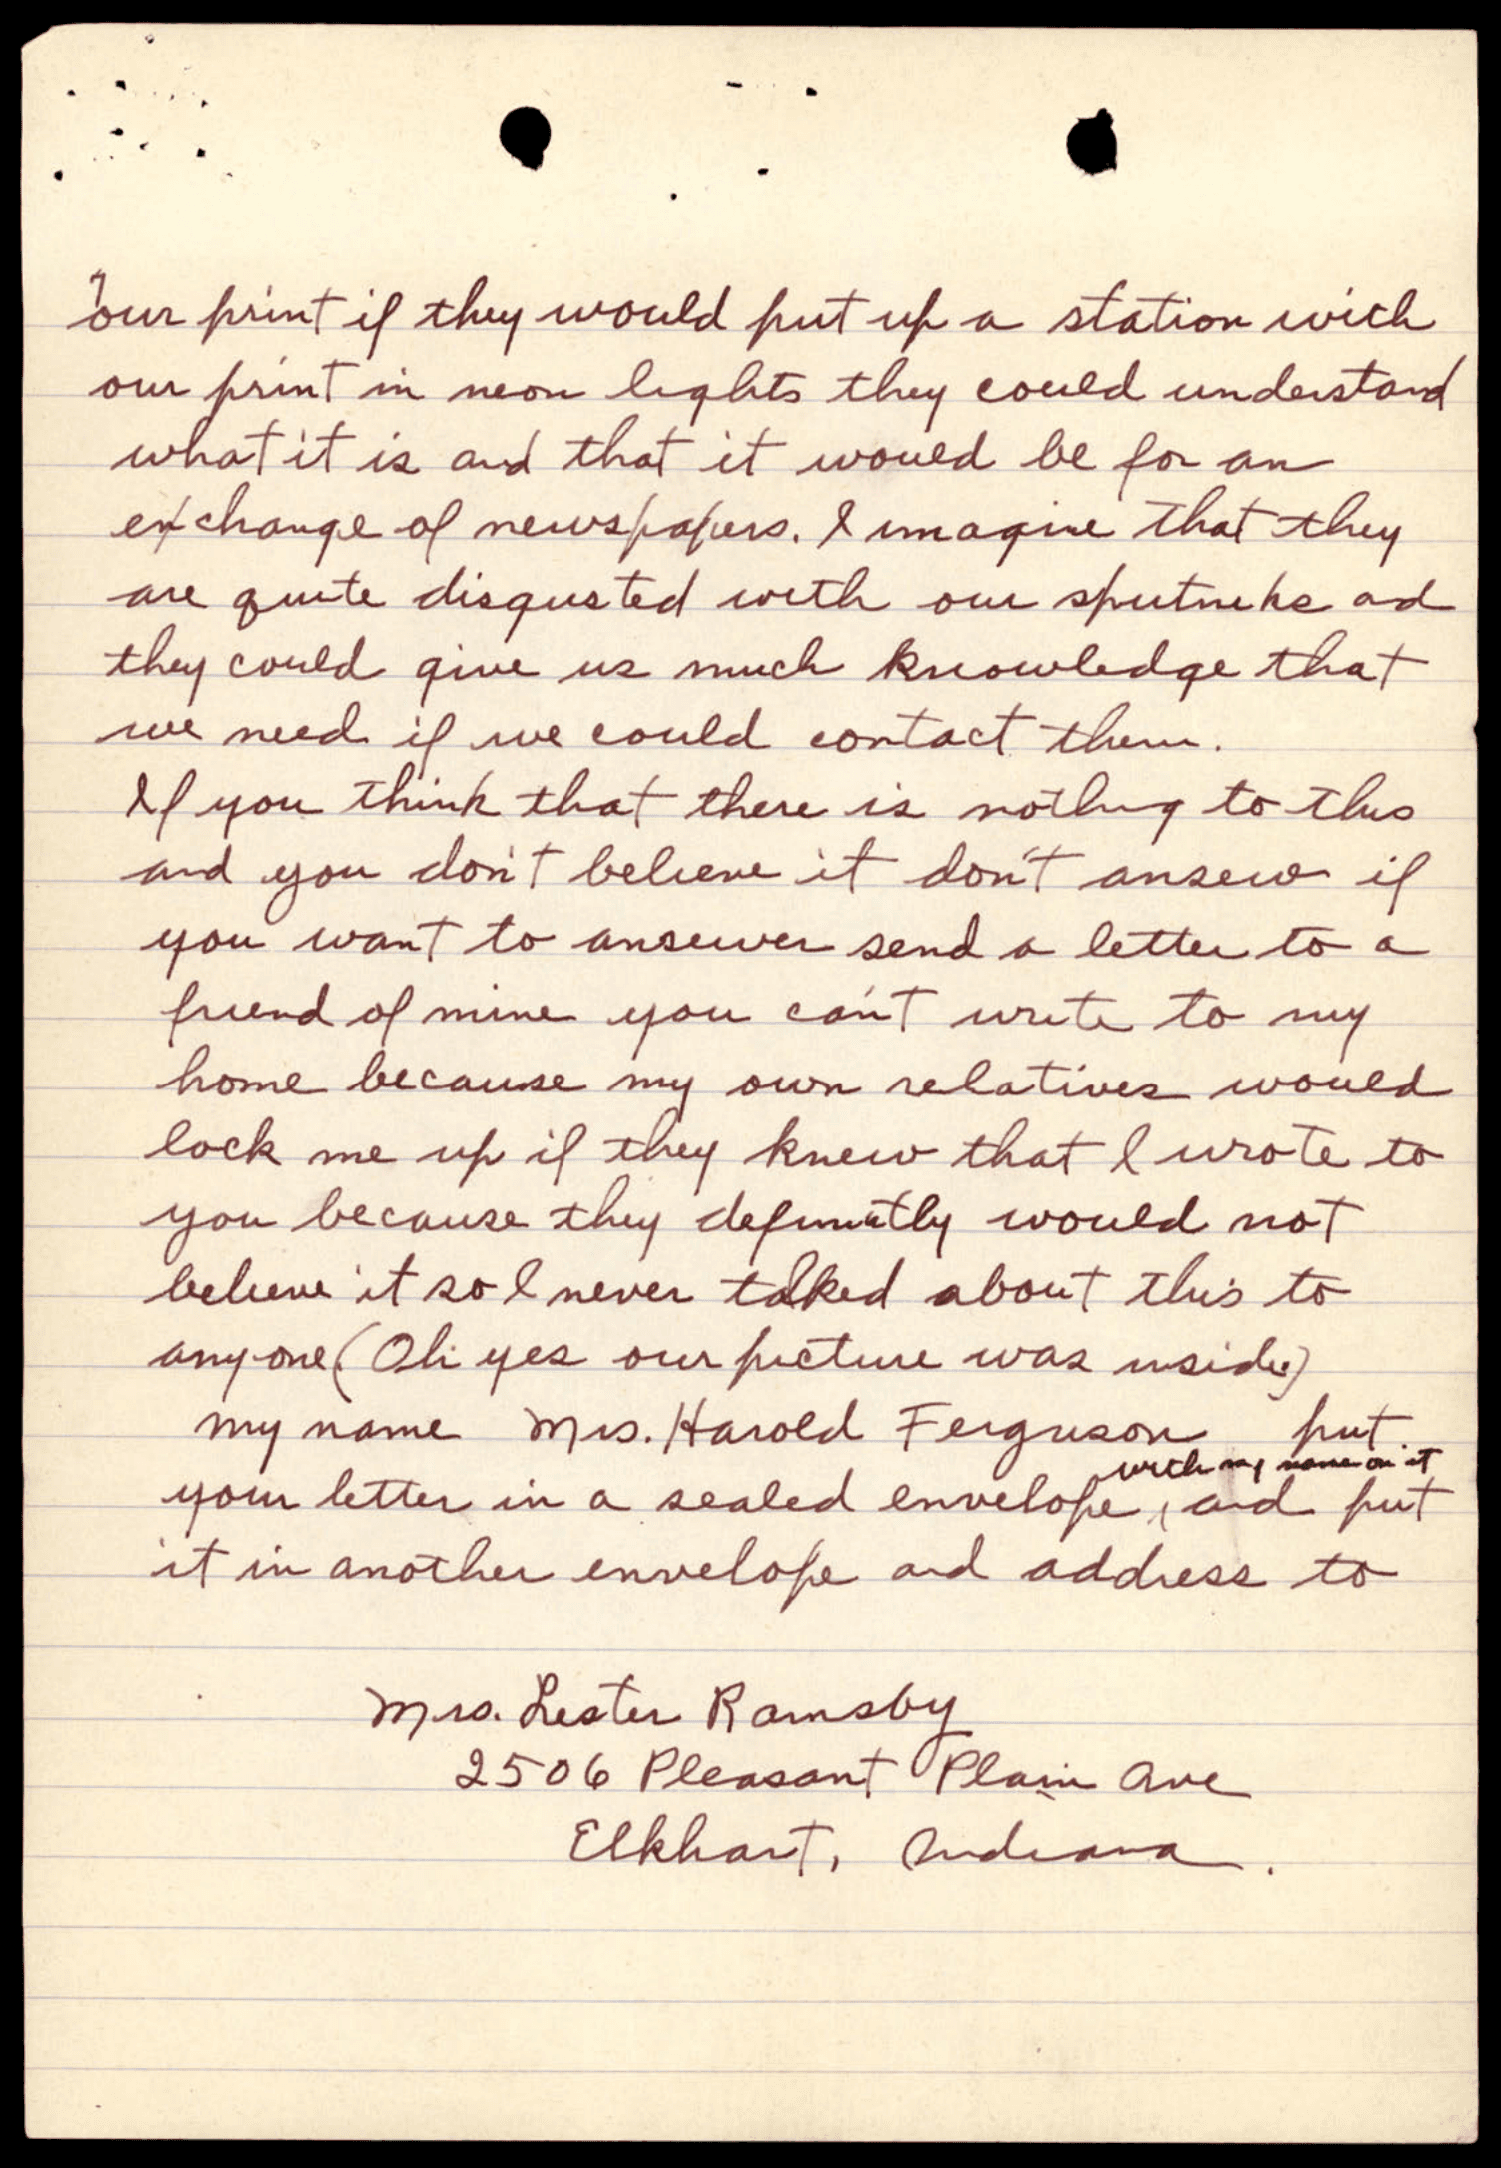 our print if they would put up a station with
our print in neon lights they could understand
what it is and that it would be for an
exchange of newspapers. I imagine that they
are quite disgusted with our sputniks and
they could give us much knowledge that
we need if we could contact them.
If you think that there is nothing to this
and you don't believe it don't answer if
you want to answer send a letter to a
friend of mine you can't write to my
home because my own relatives would
lock me up if they knew that I wrote to
you because they definatly would not
believe it so I never talked about this to
anyone (Oh yes our picture was inside)
my name Mrs. Harold Ferguson put
with my name on it
your letter in a sealed envelope, and put
it in another envelope and address to
Mrs. Lester Ramsby
2506 Pleasant Plain Ave
Elkhart, Indiana.